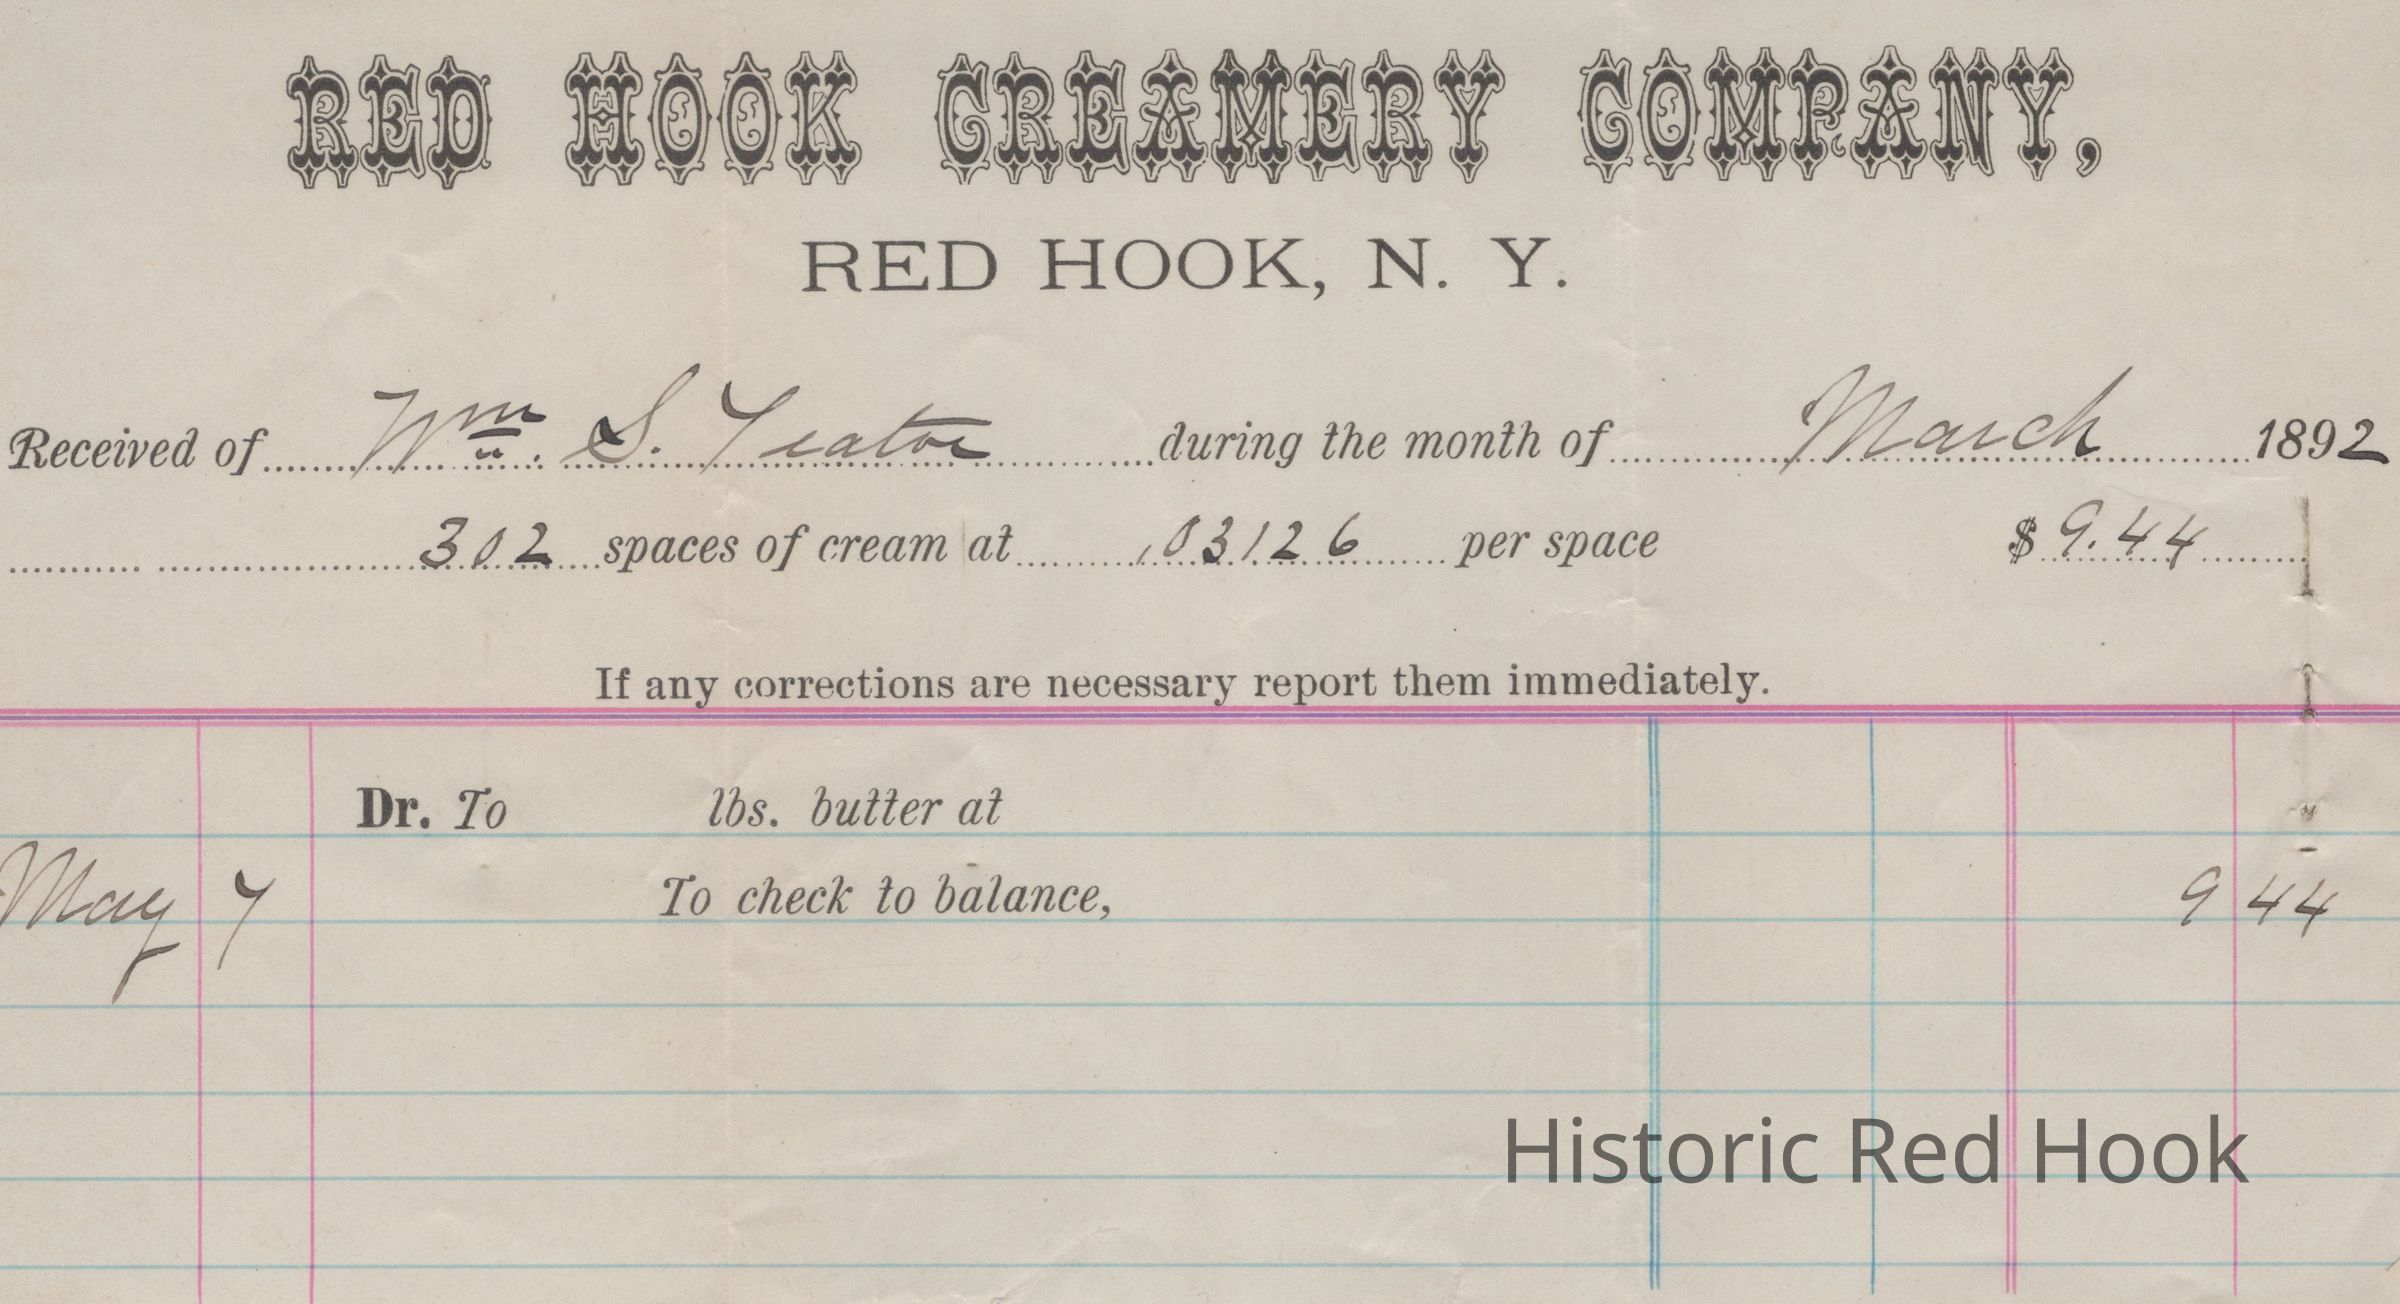 RED HOOK CREAMERY COMPANY,
RED HOOK, N. Y.
Received of Wm. S. Teator during the month of March 1892
302 spaces of cream at .03126 per space $ 9.44
If any corrections are necessary report them immediately.
Dr. To lbs. butter at
May 7 To check to balance, 9 44
Historic Red Hook